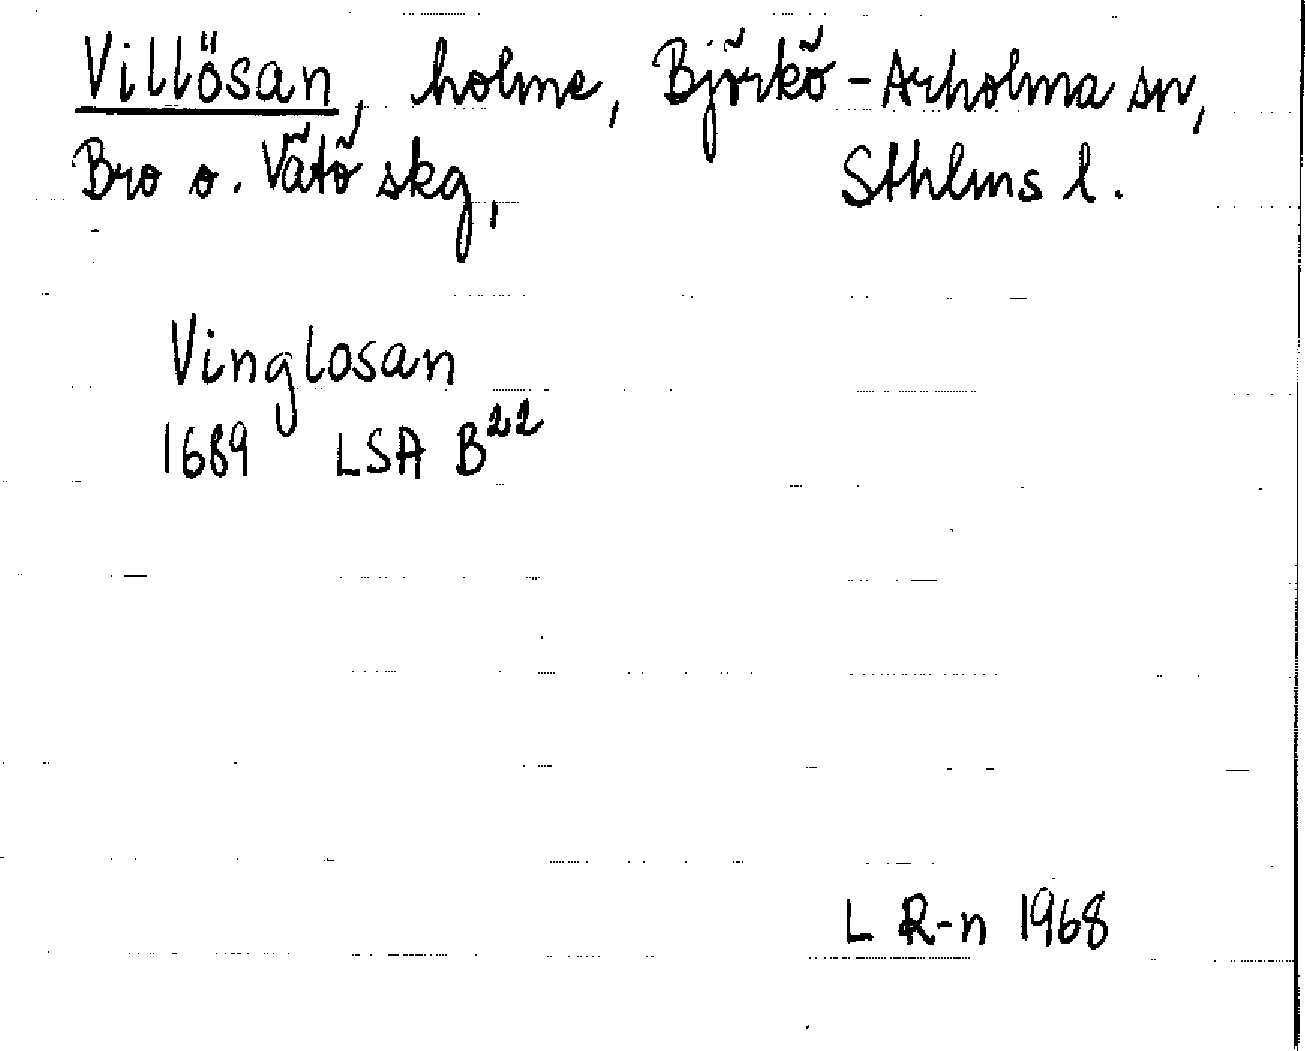 Villösan, holme, Björkö-Arholma sn,
Bro o. Vätö skg, Sthlms l.
Vinglosan
1689 LSA B²²
L R-n 1968